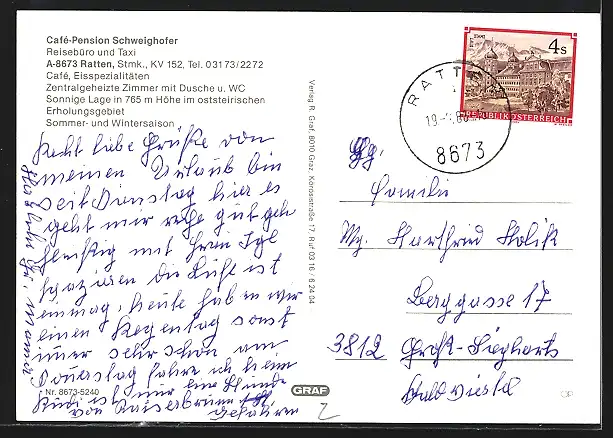 Café-Pension Schweighofer
Reisebüro und Taxi
A-8673 Ratten, Stmk., KV 152, Tel. 03173/2272
Café, Eisspezialitäten
Zentralgeheizte Zimmer mit Dusche u. WC
Sonnige Lage in 765 m Höhe im oststeirischen
Erholungsgebiet
Sommer- und Wintersaison
Recht liebe Grüße von
meinen Urlaub bin
seit Dienstag hier es
geht mir sehr gut geh
fleißig mit Frau Igl
spazieren die Luft ist
einmag, Heute haben wir
einen Regentag sonst
immer sehr schön am
Donerstag fahre ich heim
Rudi ist nur eine Stunde
von Kaiserbrunn
Gefahren
Nr. 8673-5240
Verlag R. Graf, 8010 Graz, Körösistraße 17, Ruf 03 16 / 6 24 04
GRAF
4s
REPUBLIK ÖSTERREICH
RATTEN
8673
Familie
Hartfried Kolik
Berggasse 17
3812 Groß-Siegharts
Waldviertel